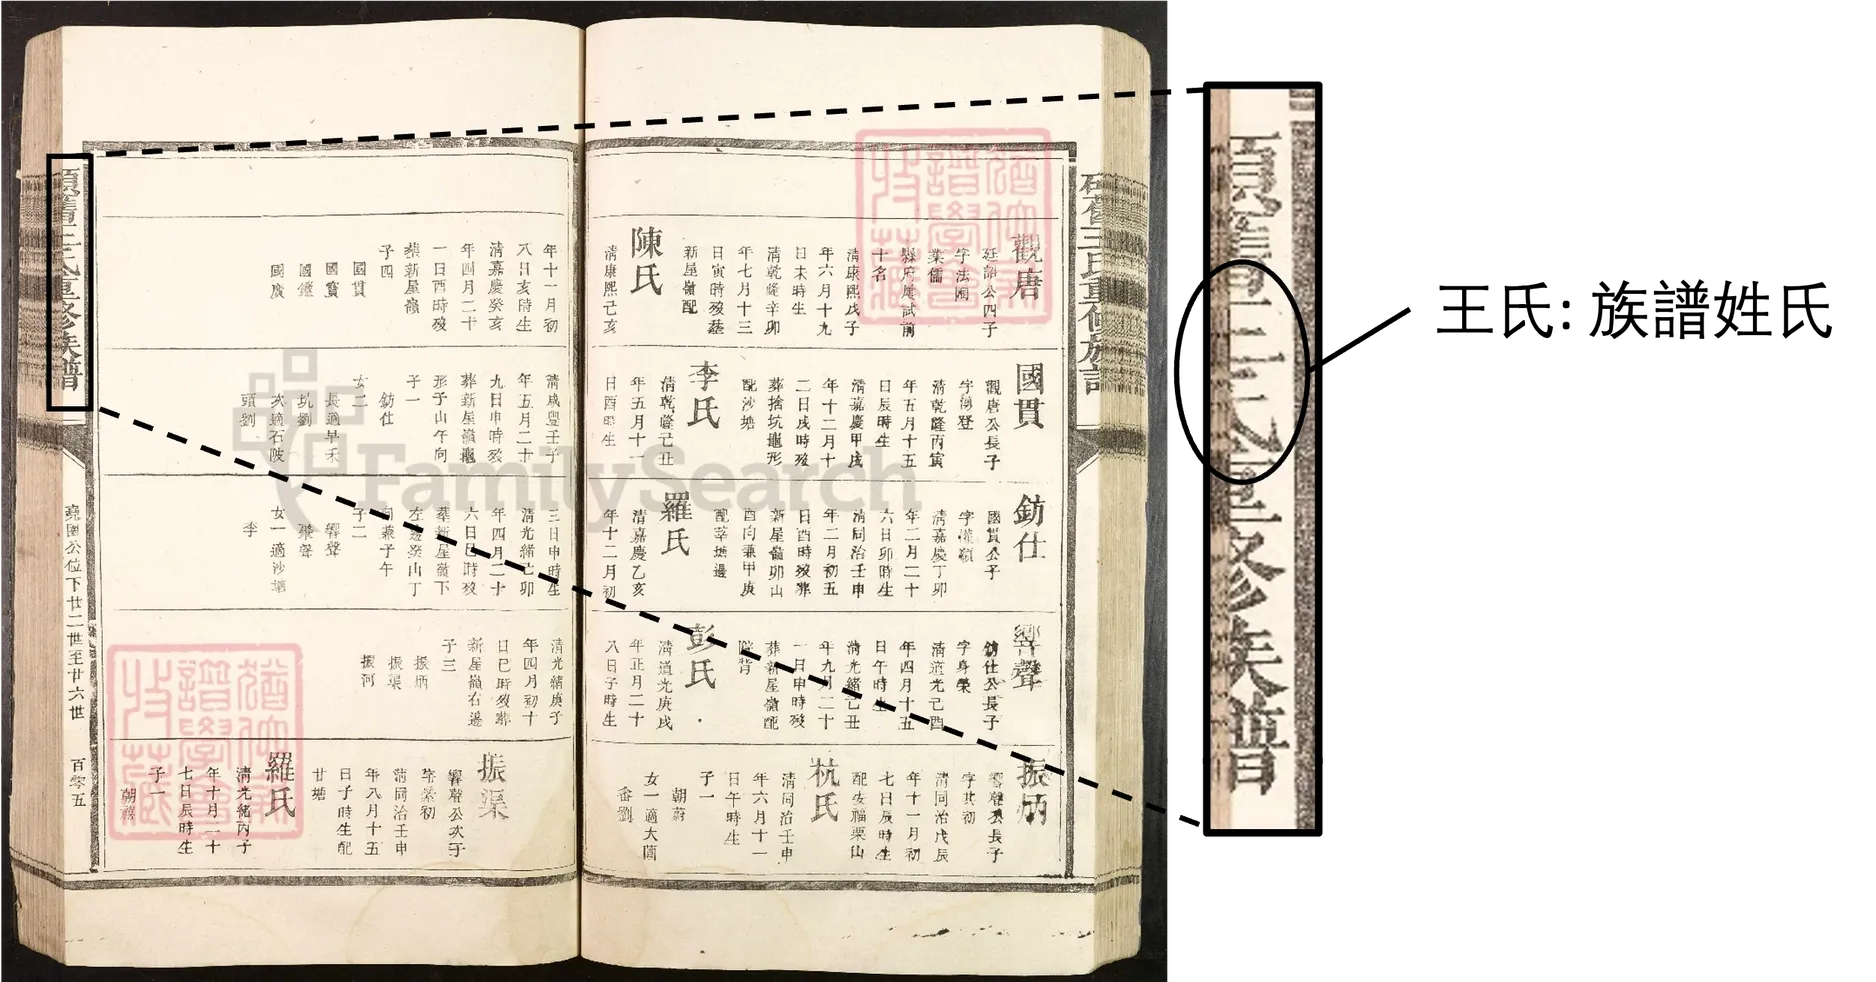 王氏：族譜姓氏
王氏重修族譜
觀唐
廷詔公四子
字法園
業儒
縣府屢試前
十名
清康熙戊子
年六月十九
日未時生
清乾隆辛卯
年七月十三
日寅時歿葬
新屋嶺配
陳氏
清康熙己亥
年十一月初
八日亥時生
清嘉慶癸亥
年四月二十
一日酉時歿
葬新屋嶺
子四
國貫
國寶
國鑑
國賡
國貫
觀唐公長子
清乾隆丙寅
年五月十五
日辰時生
清嘉慶甲戌
年十二月十
二日戌時歿
葬捨坑龜形
配沙塘
李氏
清乾隆己丑
年五月十一
日酉時生
清咸豐壬子
年五月二十
九日申時歿
葬新屋嶺龜
形子山午向
子一
鈁仕
女二
長適早禾
坑劉
次適石陂
頭劉
鈁仕
國貫公子
清嘉慶丁卯
年二月二十
六日卯時生
清同治壬申
年二月初五
日酉時歿葬
新屋嶺卯山
酉向兼甲庚
配宰塘邊
羅氏
清嘉慶乙亥
年十二月初
三日申時生
清光緒己卯
年四月二十
六日巳時歿
葬新屋嶺下
左邊癸山丁
向兼子午
子二
響聲
女一適沙塘
李
響聲
鈁仕公長子
字身榮
清道光己酉
年四月十五
日午時生
清光緒己丑
年九月二十
一日申時歿
葬新屋嶺配
彭氏
清道光庚戌
年正月二十
八日子時生
清光緒庚子
年四月初十
日巳時歿葬
新屋嶺右邊
子三
振炳
振渠
振河
振炳
響聲公長子
字其初
清同治戊辰
年十一月初
七日辰時生
配安福栗山
杭氏
清同治壬申
年六月十一
日午時生
子一
朝蔚
女一適大岡
畬劉
振渠
響聲公次子
清同治壬申
年八月十五
日子時生配
甘塘
羅氏
清光緒丙子
年十月二十
七日辰時生
子一
朝禧
堯園公位下廿二世至廿六世
百零五
FamilySearch